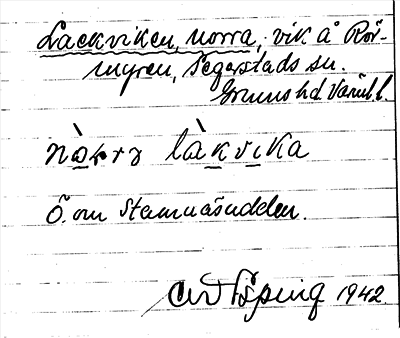 Lackviken, norra, vik å Rör-
myren, Segerstads sn.
Grums hd. Värml. l.
nò̀rrɤ làkvika
Ö. om Stamnäsudden.
Arv Töping 1942